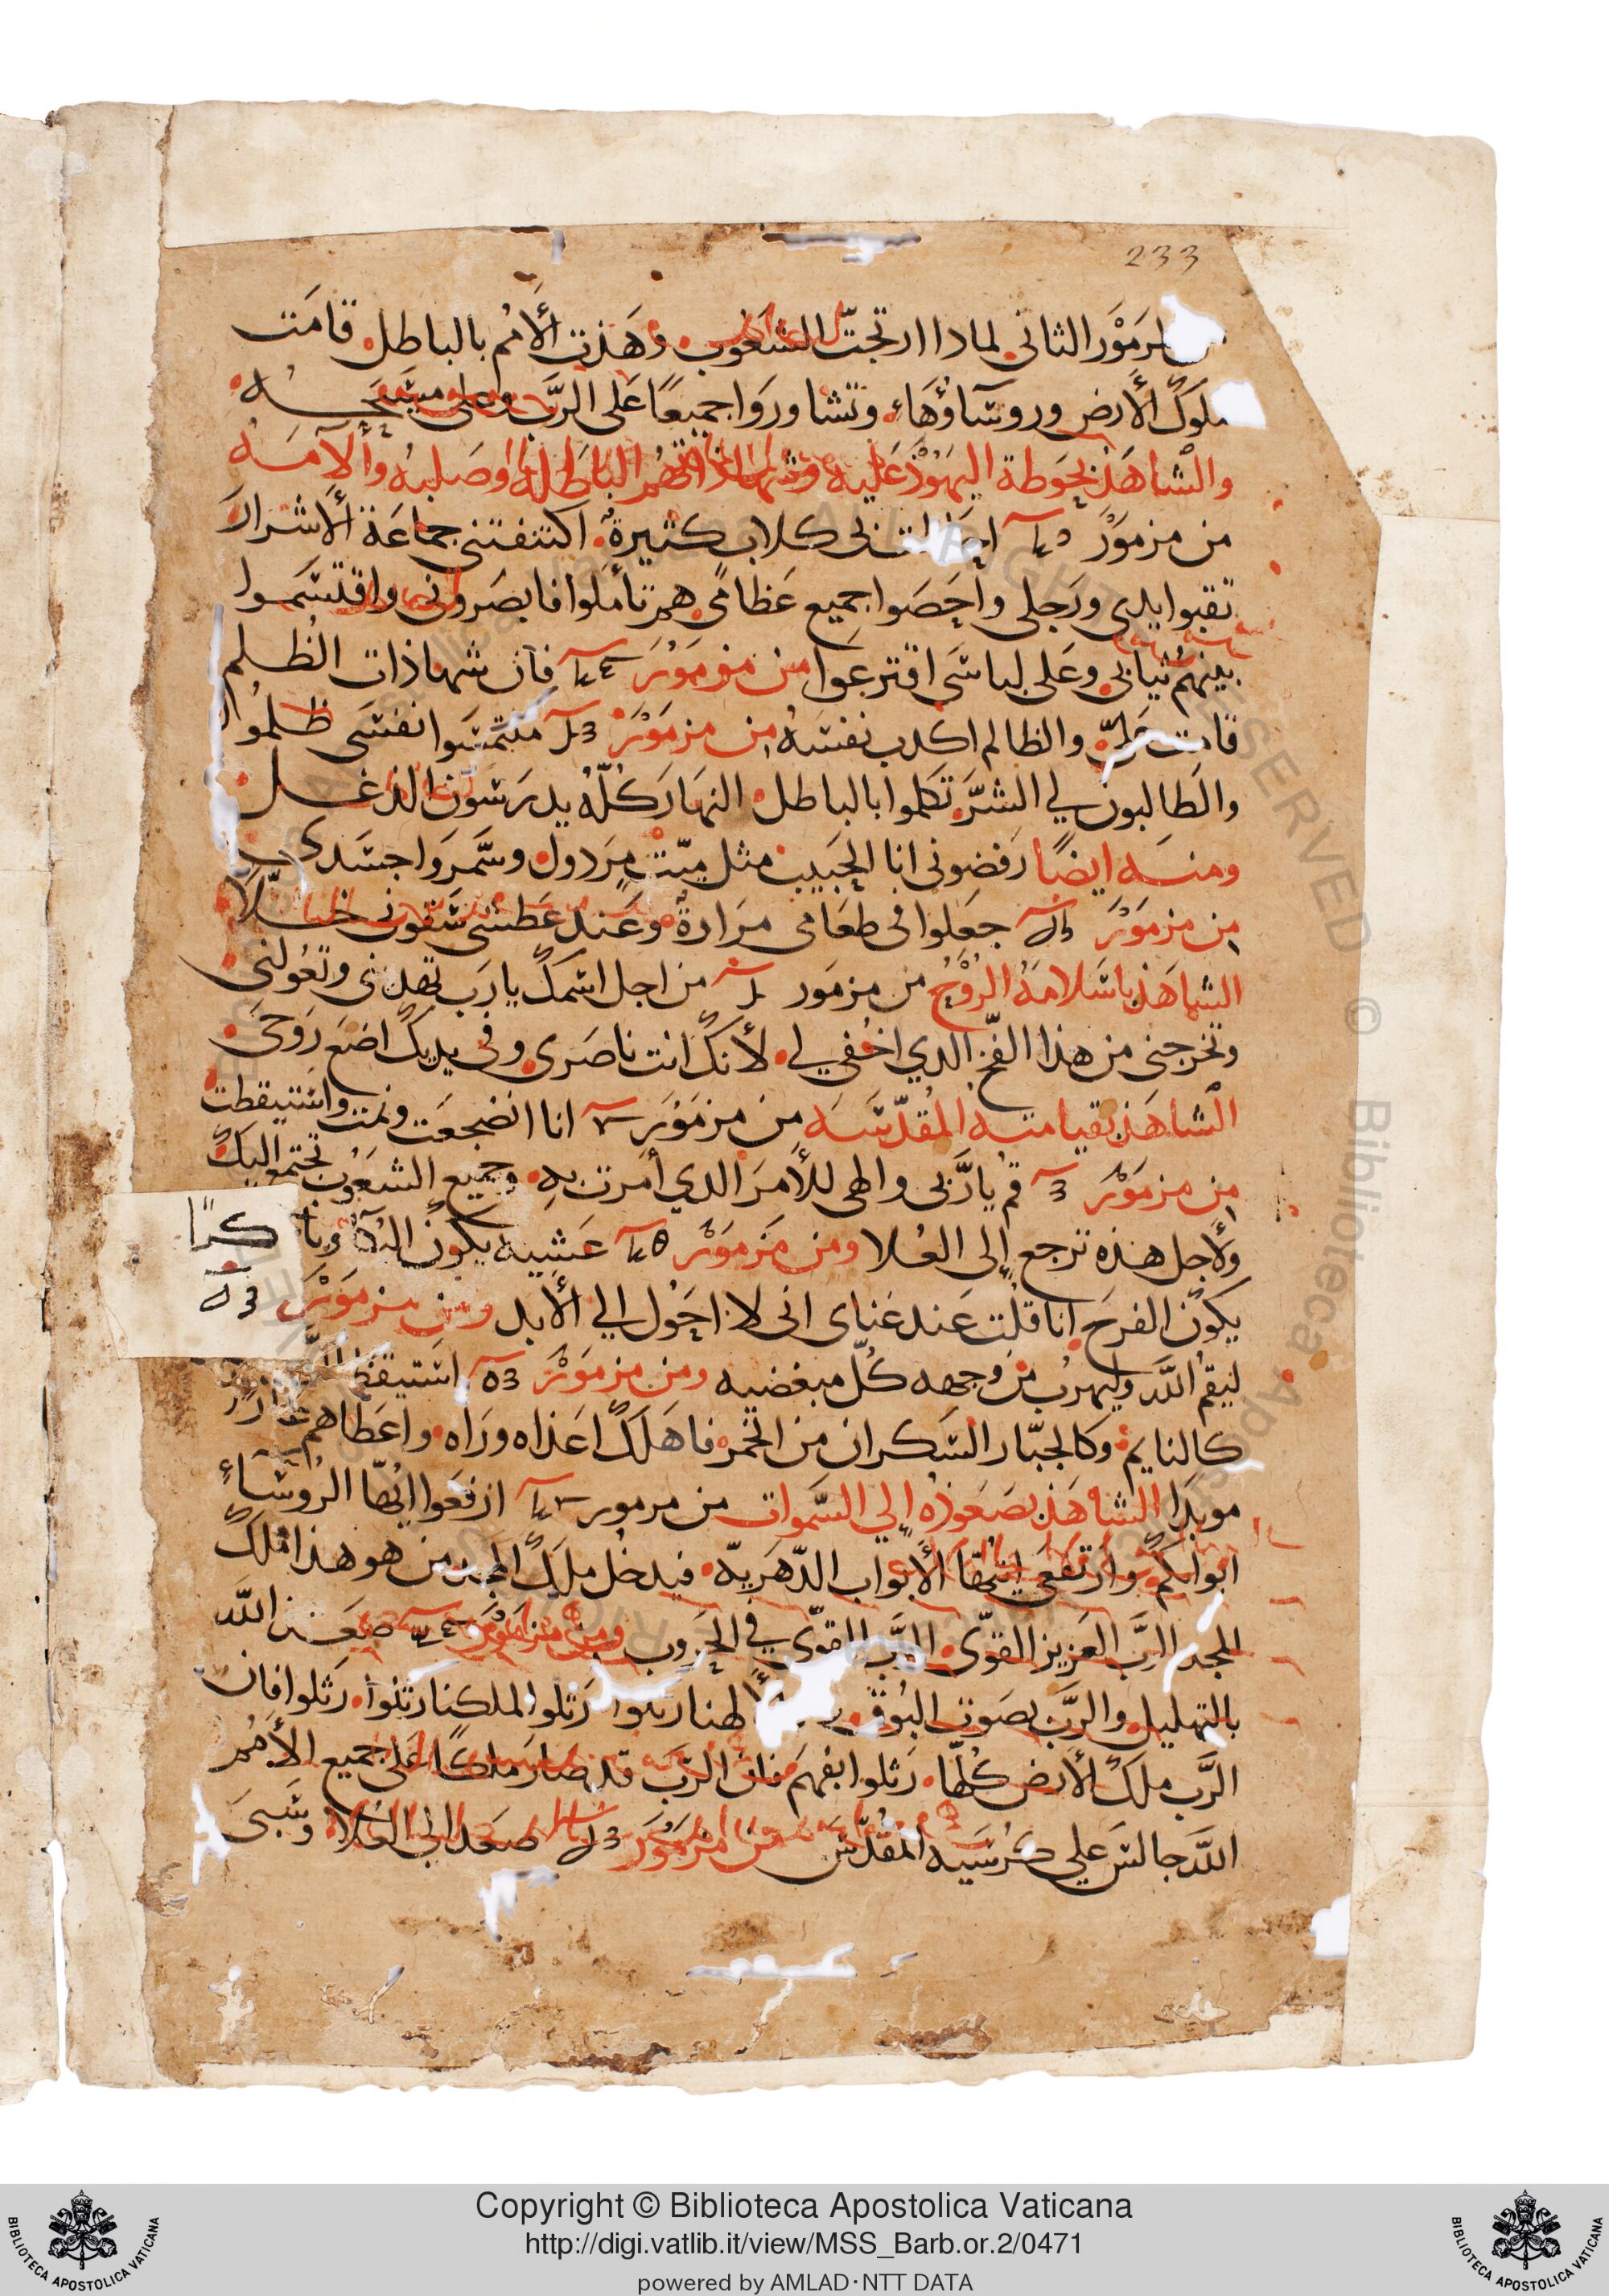 233
المزمور الثاني لماذا ارتجت الشعوب وهذت الأمم بالباطل قامت
ملوك الأرض وروساؤها وتشاوروا جميعًا على الرب وعلى مسيحه
والشاهد بحوطة اليهود عليه وصلبه والآمه
من مزمور احاطت بي كلاب كثيرة اكتنفتني جماعة الأشرار
ثقبوا يدي ورجلي واحصوا جميع عظامي هم تأملوا فابصروني واقتسموا
بينهم ثيابي وعلى لباسي اقترعوا من مزمور فان شهادات الظلم
قامت عليّ والظالم اكدب نفسه من مزمور ملتمسوا نفسي ظلموا
والطالبون لي الشرّ تكلموا بالباطل النهار كلّه يدرسون الدغل
ومنه ايضًا رفضوني انا الحبيب مثل ميّت مردول وسمّروا جسدي
من مزمور جعلوا في طعامي مرارة وعند عطشي سقوني خلّا
الشاهد باسلامه الروح من مزمور من اجل اسمك يا رب تهديني وتعولني
وتخرجني من هذا الفخ الدي اخفي لي لأنك انت ناصري وفي يديك اضع روحي
الشاهد بقيامته المقدّسه من مزمور انا انضجعت ونمت واستيقظت
من مزمور قم يا ربّي والهي للأمر الدي أمرت به وجميع الشعوب تجتمع اليك
ولأجل هذه ترجع إلى العلا ومن مزمور عشيه يكون البكا وباكرًا
يكون الفرح انا قلت عند غناي اني لا احول الي الأبد ومن مزمور
ليقم اللّه وليهرب من وجهه كلّ مبغضيه ومن مزمور استيقظ الرب
كالنايم وكالجبّار السكران من الخمر فاهلك اعداه وراه واعطاهم عارًا
موبدا الشاهد بصعوده إلي السموات من مزمور ارفعوا ايّها الروساء
ابوابكم وارتفعي ايتها الأبواب الدهريّه فيدخل ملك المجد من هو هذا ملك
المجد الربّ العزيز القوّي الربّ القوّي في الحروب ومن مزمور صعد اللّه
بالتهليل والربّ بصوت البوق رتلوا لالهنا رتلوا رتلوا لملكنا رتلوا رتلوا فان
الرّب ملك الأرض كلها رتلوا بفهم فان الرّب قد صار ملكًا على جميع الأمم
اللّه جالس علي كرسيه المقدّس من مزمور صعد الي العلا وسبى
Copyright © Biblioteca Apostolica Vaticana
http://digi.vatlib.it/view/MSS_Barb.or.2/0471
powered by AMLAD·NTT DATA
BIBLIOTECA APOSTOLICA VATICANA
BIBLIOTECA APOSTOLICA VATICANA